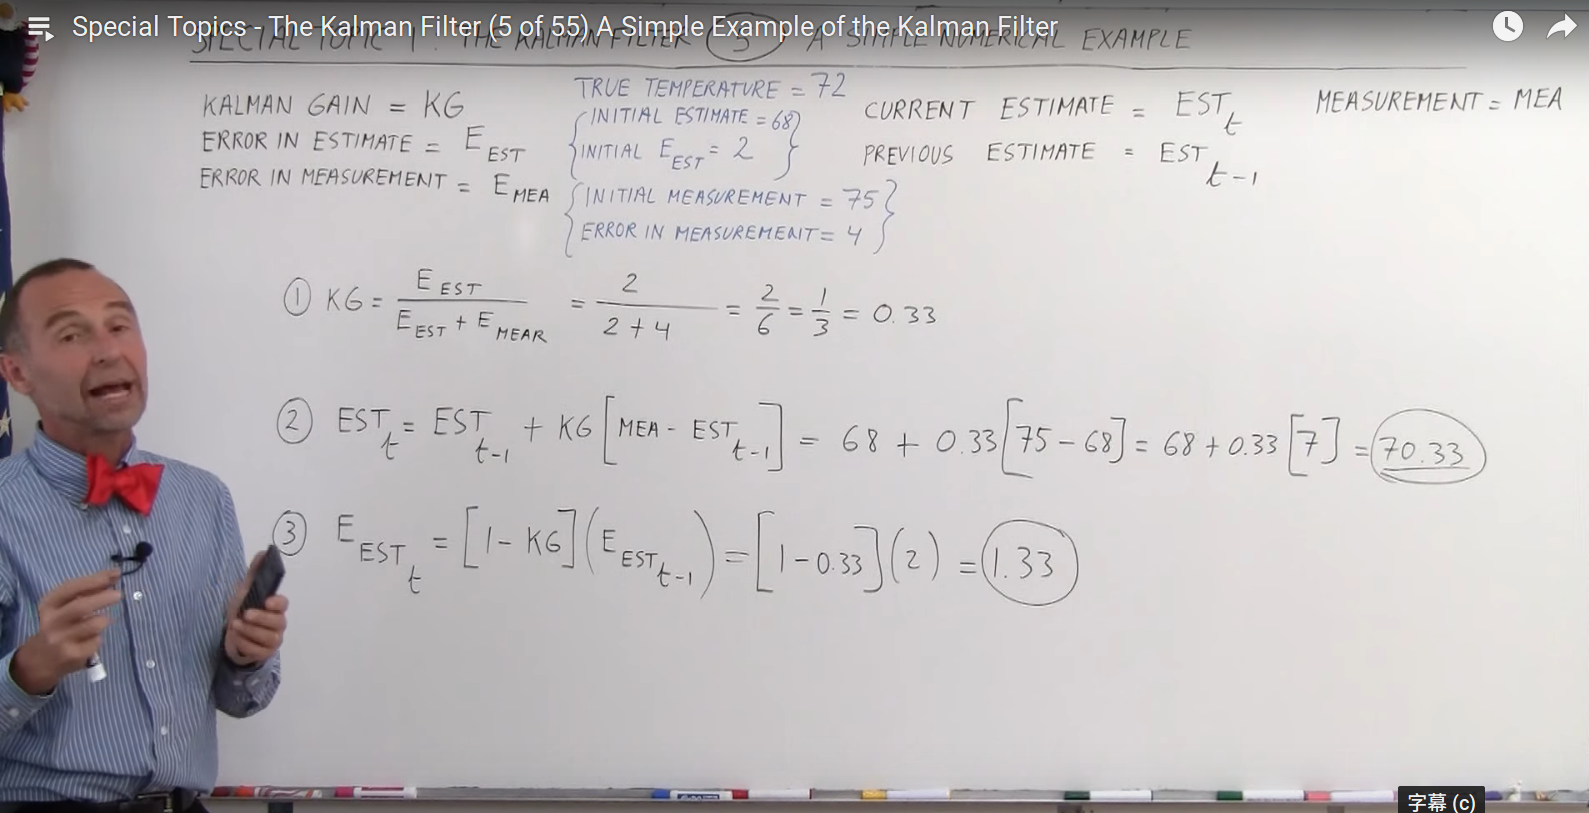 Special Topics - The Kalman Filter (5 of 55) A Simple Example of the Kalman Filter
SPECIAL TOPIC 1: THE KALMAN FILTER (5) A SIMPLE NUMERICAL EXAMPLE
KALMAN GAIN = KG
ERROR IN ESTIMATE = E EST
ERROR IN MEASUREMENT = E MEA
TRUE TEMPERATURE = 72
{INITIAL ESTIMATE = 68}
{INITIAL E EST = 2}
{INITIAL MEASUREMENT = 75}
{ERROR IN MEASUREMENT = 4}
CURRENT ESTIMATE = EST t
PREVIOUS ESTIMATE = EST t-1
MEASUREMENT = MEA
① KG = E EST / (E EST + E MEAR) = 2 / (2 + 4) = 2/6 = 1/3 = 0.33
② EST t = EST t-1 + KG [MEA - EST t-1] = 68 + 0.33 [75 - 68] = 68 + 0.33 [7] = 70.33
③ E EST t = [1 - KG] (E EST t-1) = [1 - 0.33] (2) = 1.33
字幕 (c)